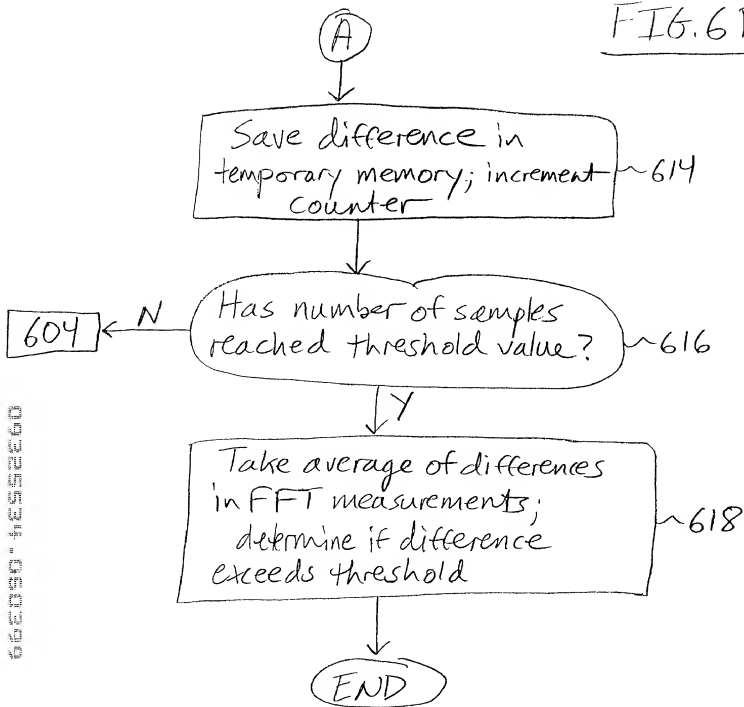 FIG.6B
A
Save difference in
temporary memory; increment
counter
614
Has number of samples
reached threshold value?
616
N
604
Y
Take average of differences
in FFT measurements;
determine if difference
exceeds threshold
618
END
09325534.060399